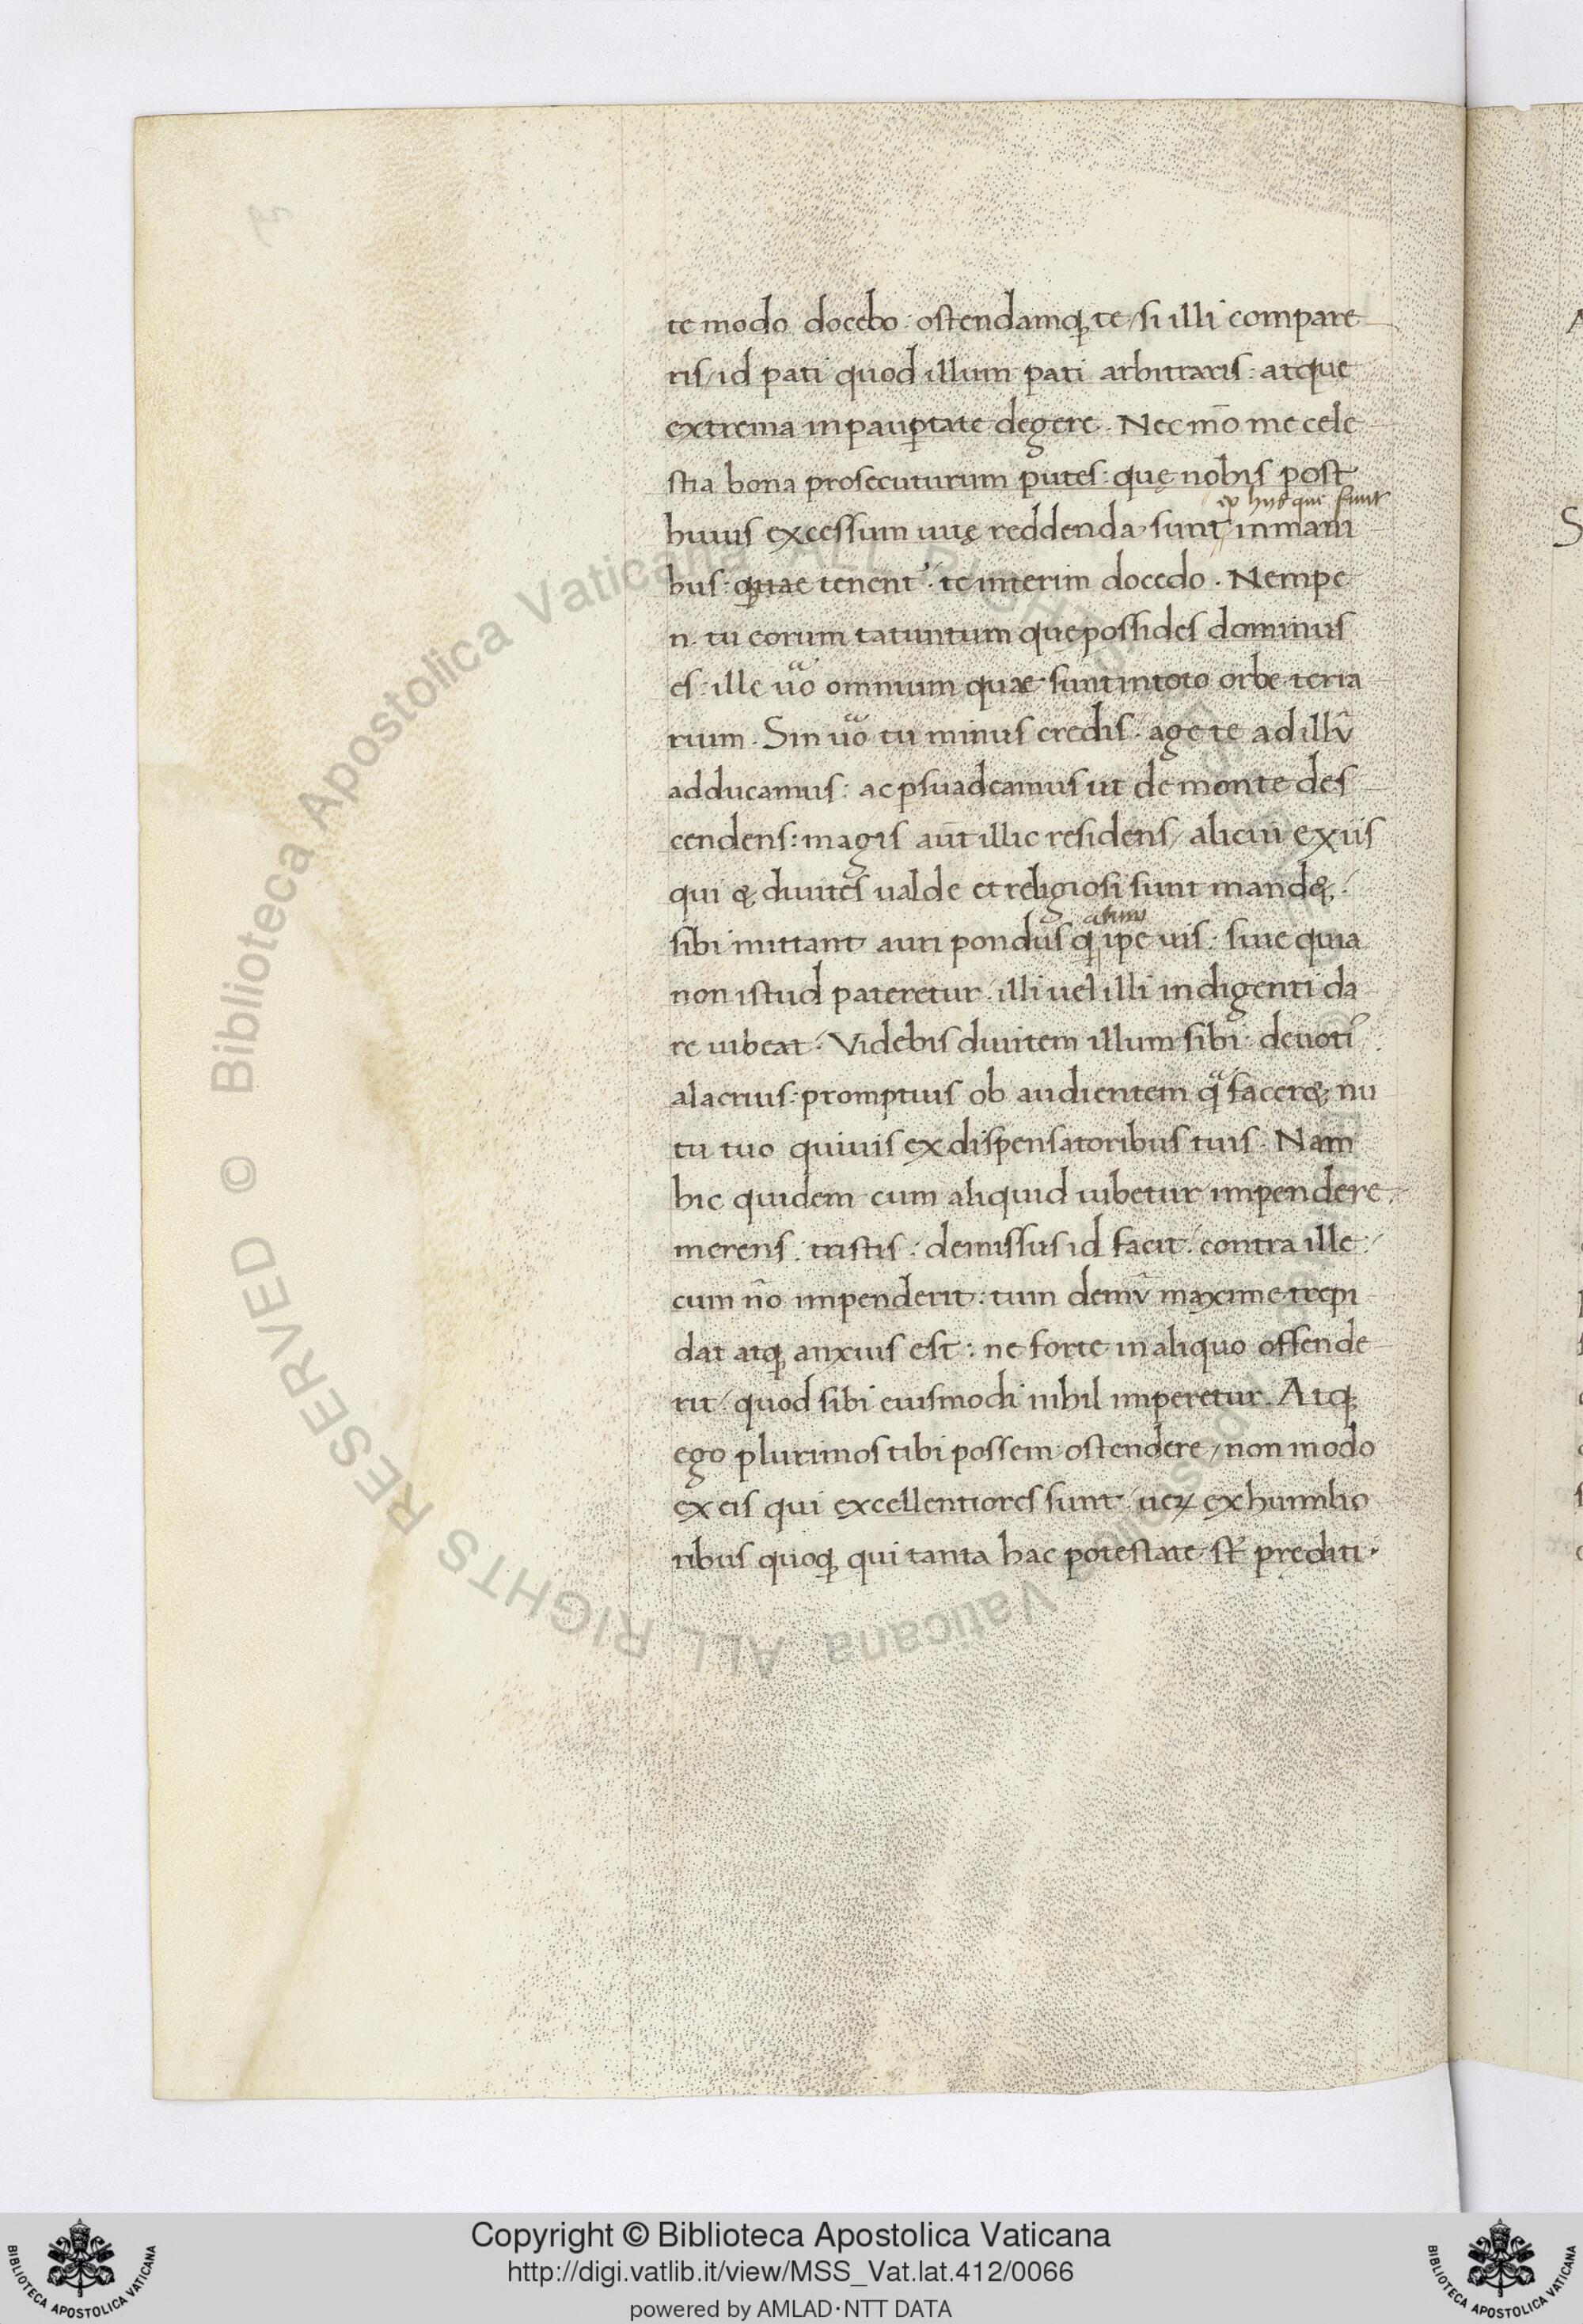 te modo docebo: ostendamq; te / si illi compare
ris / id pati quod illum pati arbitraris: atque
extrema in paup̲tate degere. Nec m̄o me cele
stia bona prosecuturum putes: quę nobis post
ex hys que sunt
huius excessum uitę reddenda sunt in mani
bus: quae tenent᾽: te interim docedo. Nempe
n. tu eorum tatuntum quę possides dominus
es: ille u͛o omnium quae sunt in toto orbe terra
rium. Sin u͛o tu minus credis. age te ad illū
adducamus: ac p̲suadeamus ut de monte des
cendens: magis aūt illic residens / alicui ex iis
qui & diuites ualde et religiosi sunt mand&:
sibi mittant auri pondus q ipe uis: siue quia
non istud pateretur: illi uel illi indigenti da
re iubeat: Videbis diuitem illum sibi: deuoti᾽
alacrius: promptius ob audientem qͣ facer& nu
tu tuo quiuis ex dispensatoribus tuis. Nam
hic quidem cum aliquid iubetur impendere
merens: tristis: demissus id facit: contra ille:
cum n̄o impenderit: tum demū maxime trepi
dat atq; anxius est: ne forte in aliquo offende
rit / quod sibi eiusmodi nihil imperetur. Atq;
ego plurimos tibi possem ostendere / non modo
ex eis qui excellentiores sunt: ueꝝ ex humilio
ribus quoq; qui tanta hac potestate st̄ pręditi.
Copyright © Biblioteca Apostolica Vaticana
http://digi.vatlib.it/view/MSS_Vat.lat.412/0066
powered by AMLAD·NTT DATA
BIBLIOTECA APOSTOLICA VATICANA
BIBLIOTECA APOSTOLICA VATICANA
© Biblioteca Apostolica Vaticana ALL RIGHTS RESERVED